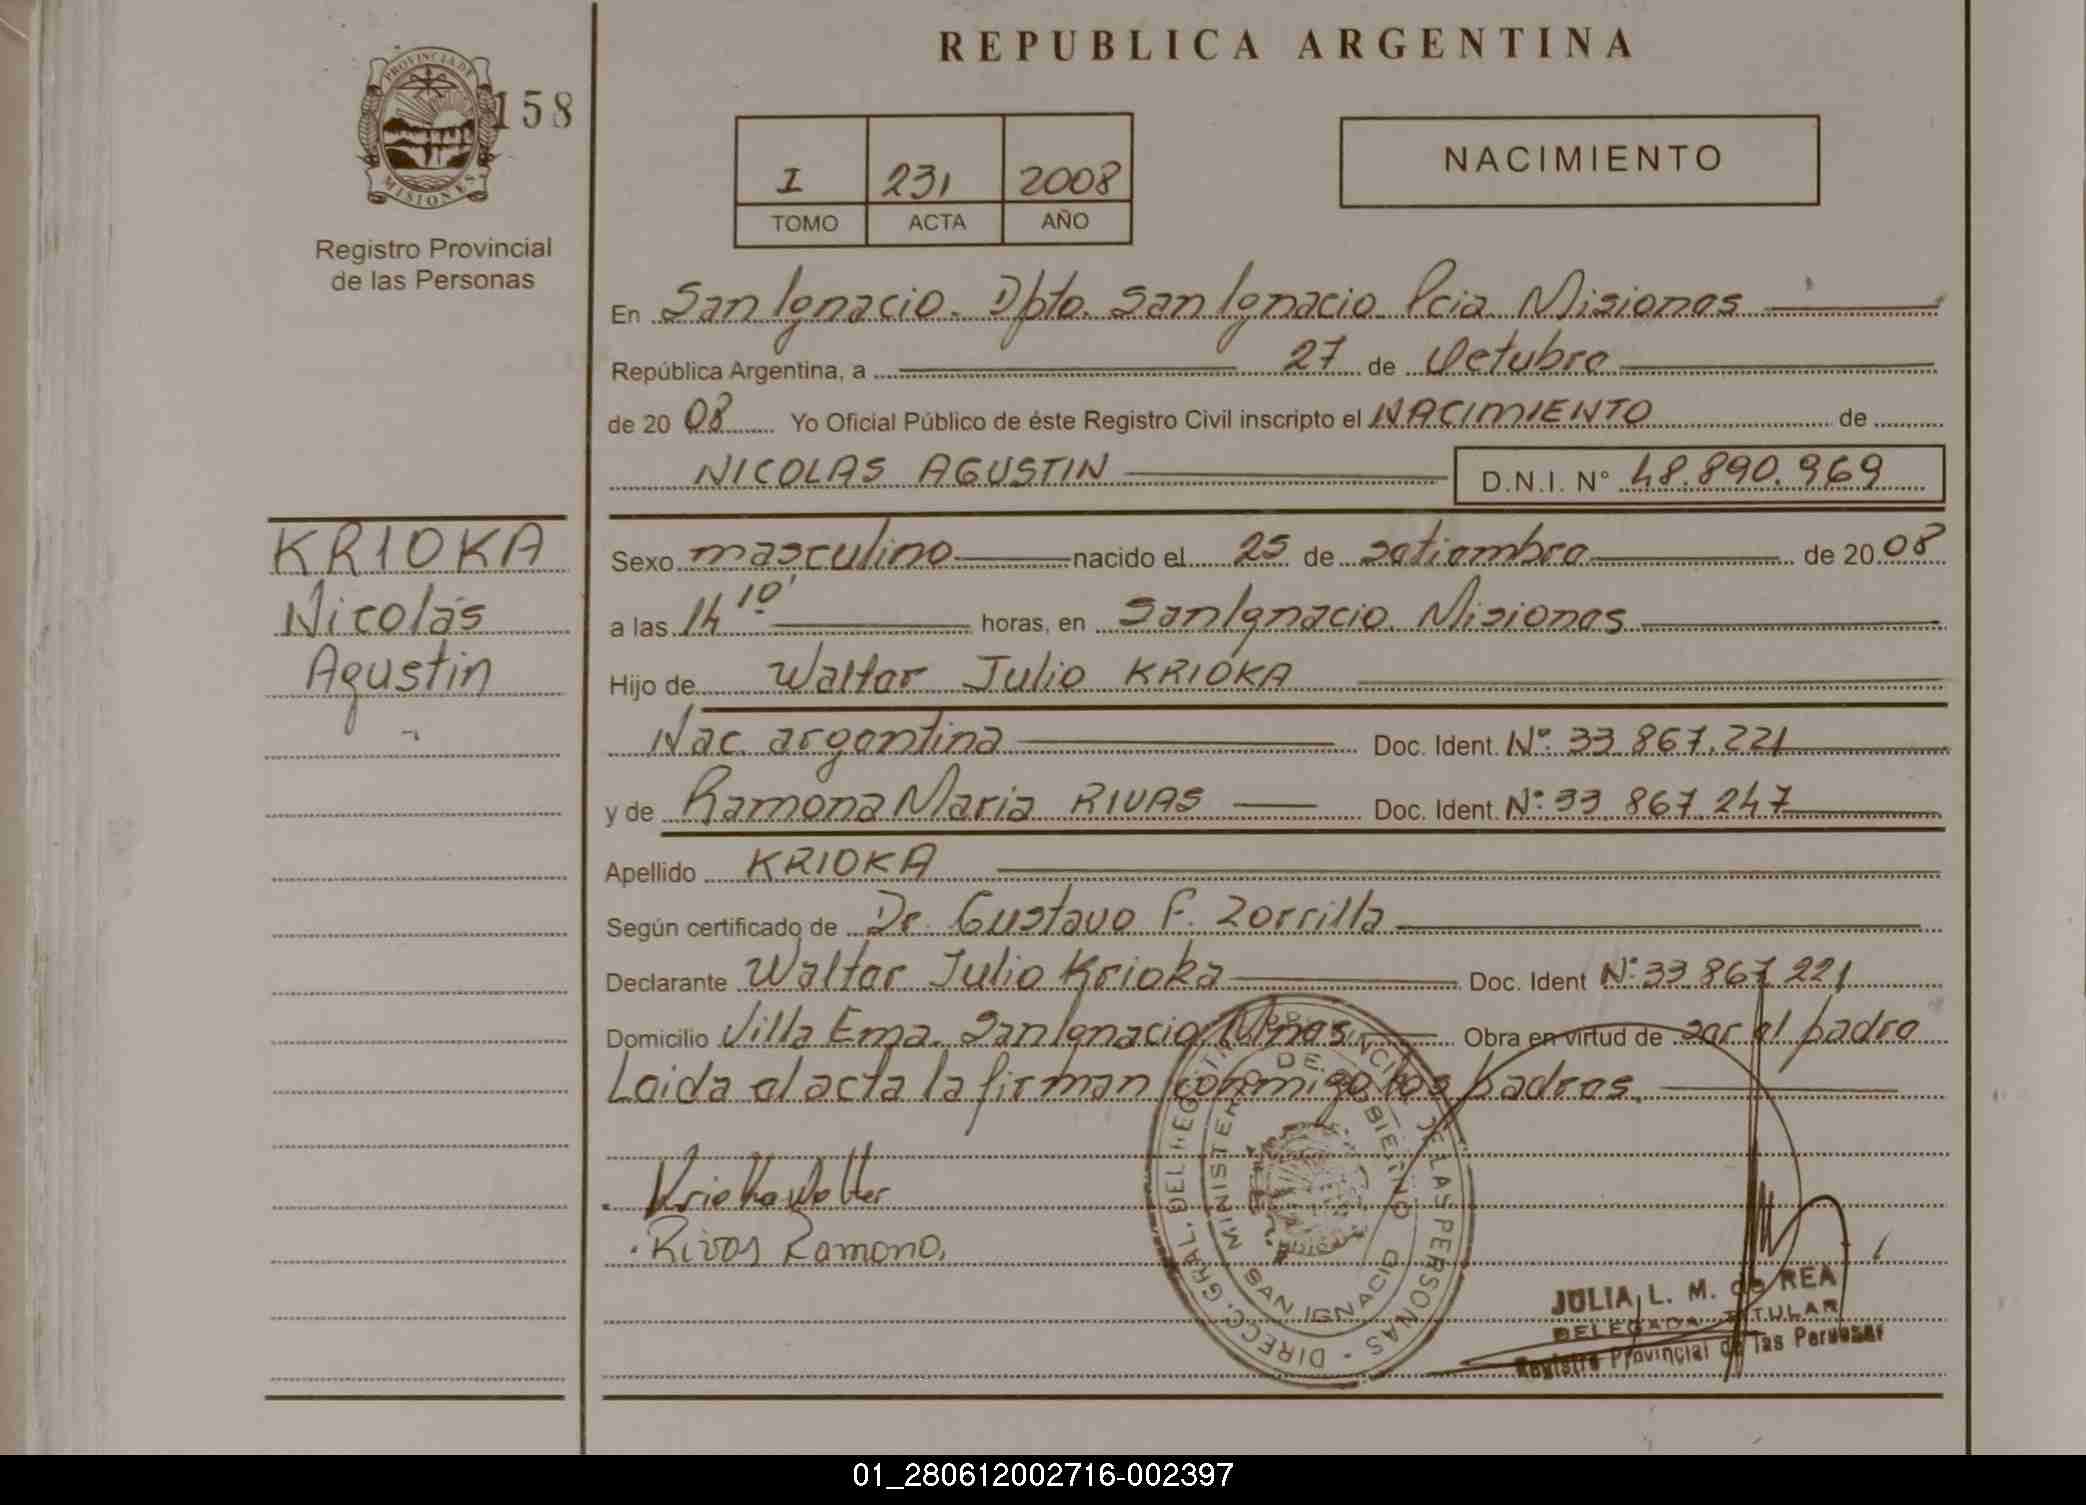 REPUBLICA ARGENTINA
PROVINCIA DE MISIONES
158
Registro Provincial
de las Personas
I 231 2008
TOMO ACTA AÑO
NACIMIENTO
En San Ignacio. Dpto. San Ignacio Pcia. Misiones
República Argentina, a 27 de Octubre
de 20 08 Yo Oficial Público de éste Registro Civil inscripto el NACIMIENTO de
NICOLAS AGUSTIN D.N.I. N° 48.890.969
KRIOKA
Nicolás
Agustin
Sexo masculino nacido el 25 de setiembre de 20 08
a las 14 10' horas, en San Ignacio. Misiones
Hijo de Walter Julio KRIOKA
Nac. argentina Doc. Ident. N°: 33.867.221
y de Ramona Maria RIVAS Doc. Ident. N°: 33.867.247
Apellido KRIOKA
Según certificado de Dr. Gustavo F. Zorrilla
Declarante Walter Julio Krioka Doc. Ident N°: 33.867.221
Domicilio Villa Ema. San Ignacio. Mnes. Obra en virtud de ser el padre
Leida el acta la firman conmigo los padres.
Krioka Walter
Rivas Ramona.
DIRECC. GRAL. DEL REG. PROVINCIAL DE LAS PERSONAS
MINISTERIO DE GOBIERNO
SAN IGNACIO
JULIA L. M. de REA
DELEGADA TITULAR
Registro Provincial de las Personas
01_280612002716-002397